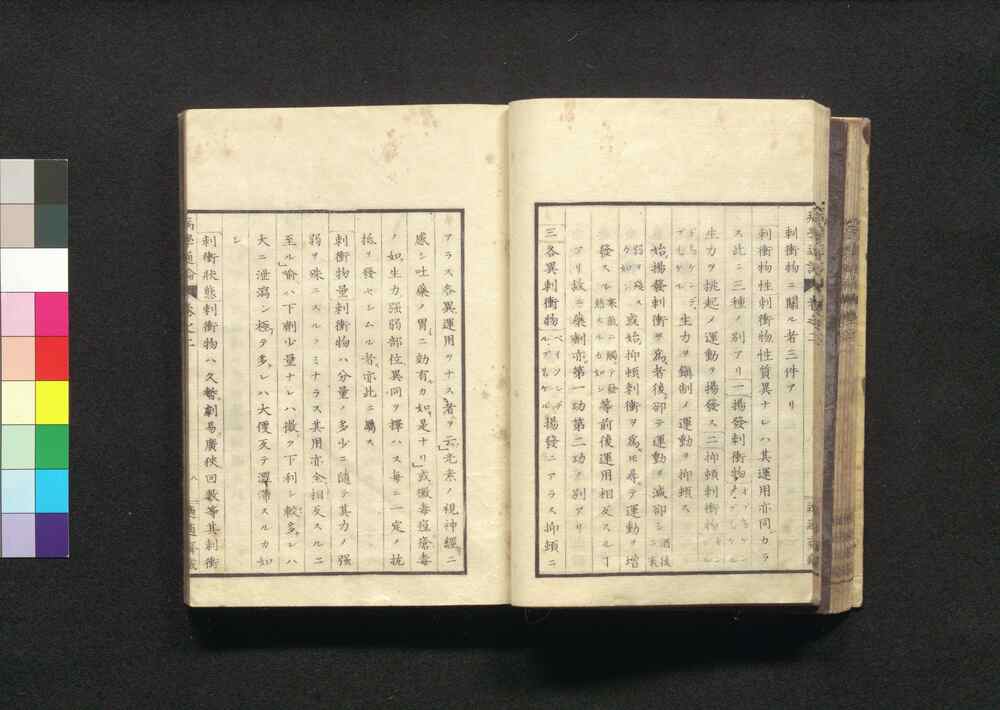 刺衝物ニ關ル者三件アリ
刺衝物性刺衝物性質異ナレハ其運用亦同カラ
ス此ニ三種ノ別アリ一揚發刺衝物
生力ヲ挑起メ運動ヲ揚發ス二抑頓刺衝物
生力ヲ鎭制メ運動ヲ抑頓ス
始揚發刺衝ヲ爲者後卻テ運動ヲ減卻シ
或始抑頓刺衝ヲ爲ル尋テ運動ヲ増
發スル 等前後運用相反スル丁
アリ故ニ藥劑亦第一功第二功ノ別アリ
三各異刺衝物 揚發ニアラス抑頓ニ
アラス各異運用ヲナス者ヲ云光素ノ視神經ニ
感シ吐藥ノ胃ニ効有カ如是ナリ或黴毒痘瘡毒
ノ如生力強弱部位異同ヲ擇ハス毎ニ一定ノ抗
抵ヲ發セシムル者亦此ニ屬ス
刺衝物量刺衝物ハ分量ノ多少ニ隨テ其力ノ強
弱ヲ殊ニスルノミナラス其用亦全相反スルニ
至ル喩ハ下劑少量ナレハ微ク下利シ較多レハ
大ニ泄瀉シ極テ多レハ大便反テ澀滯スルカ如
シ
刺衝狀態刺衝物ハ久暫劇易廣狹回數等其刺衝
病學通論 卷之二